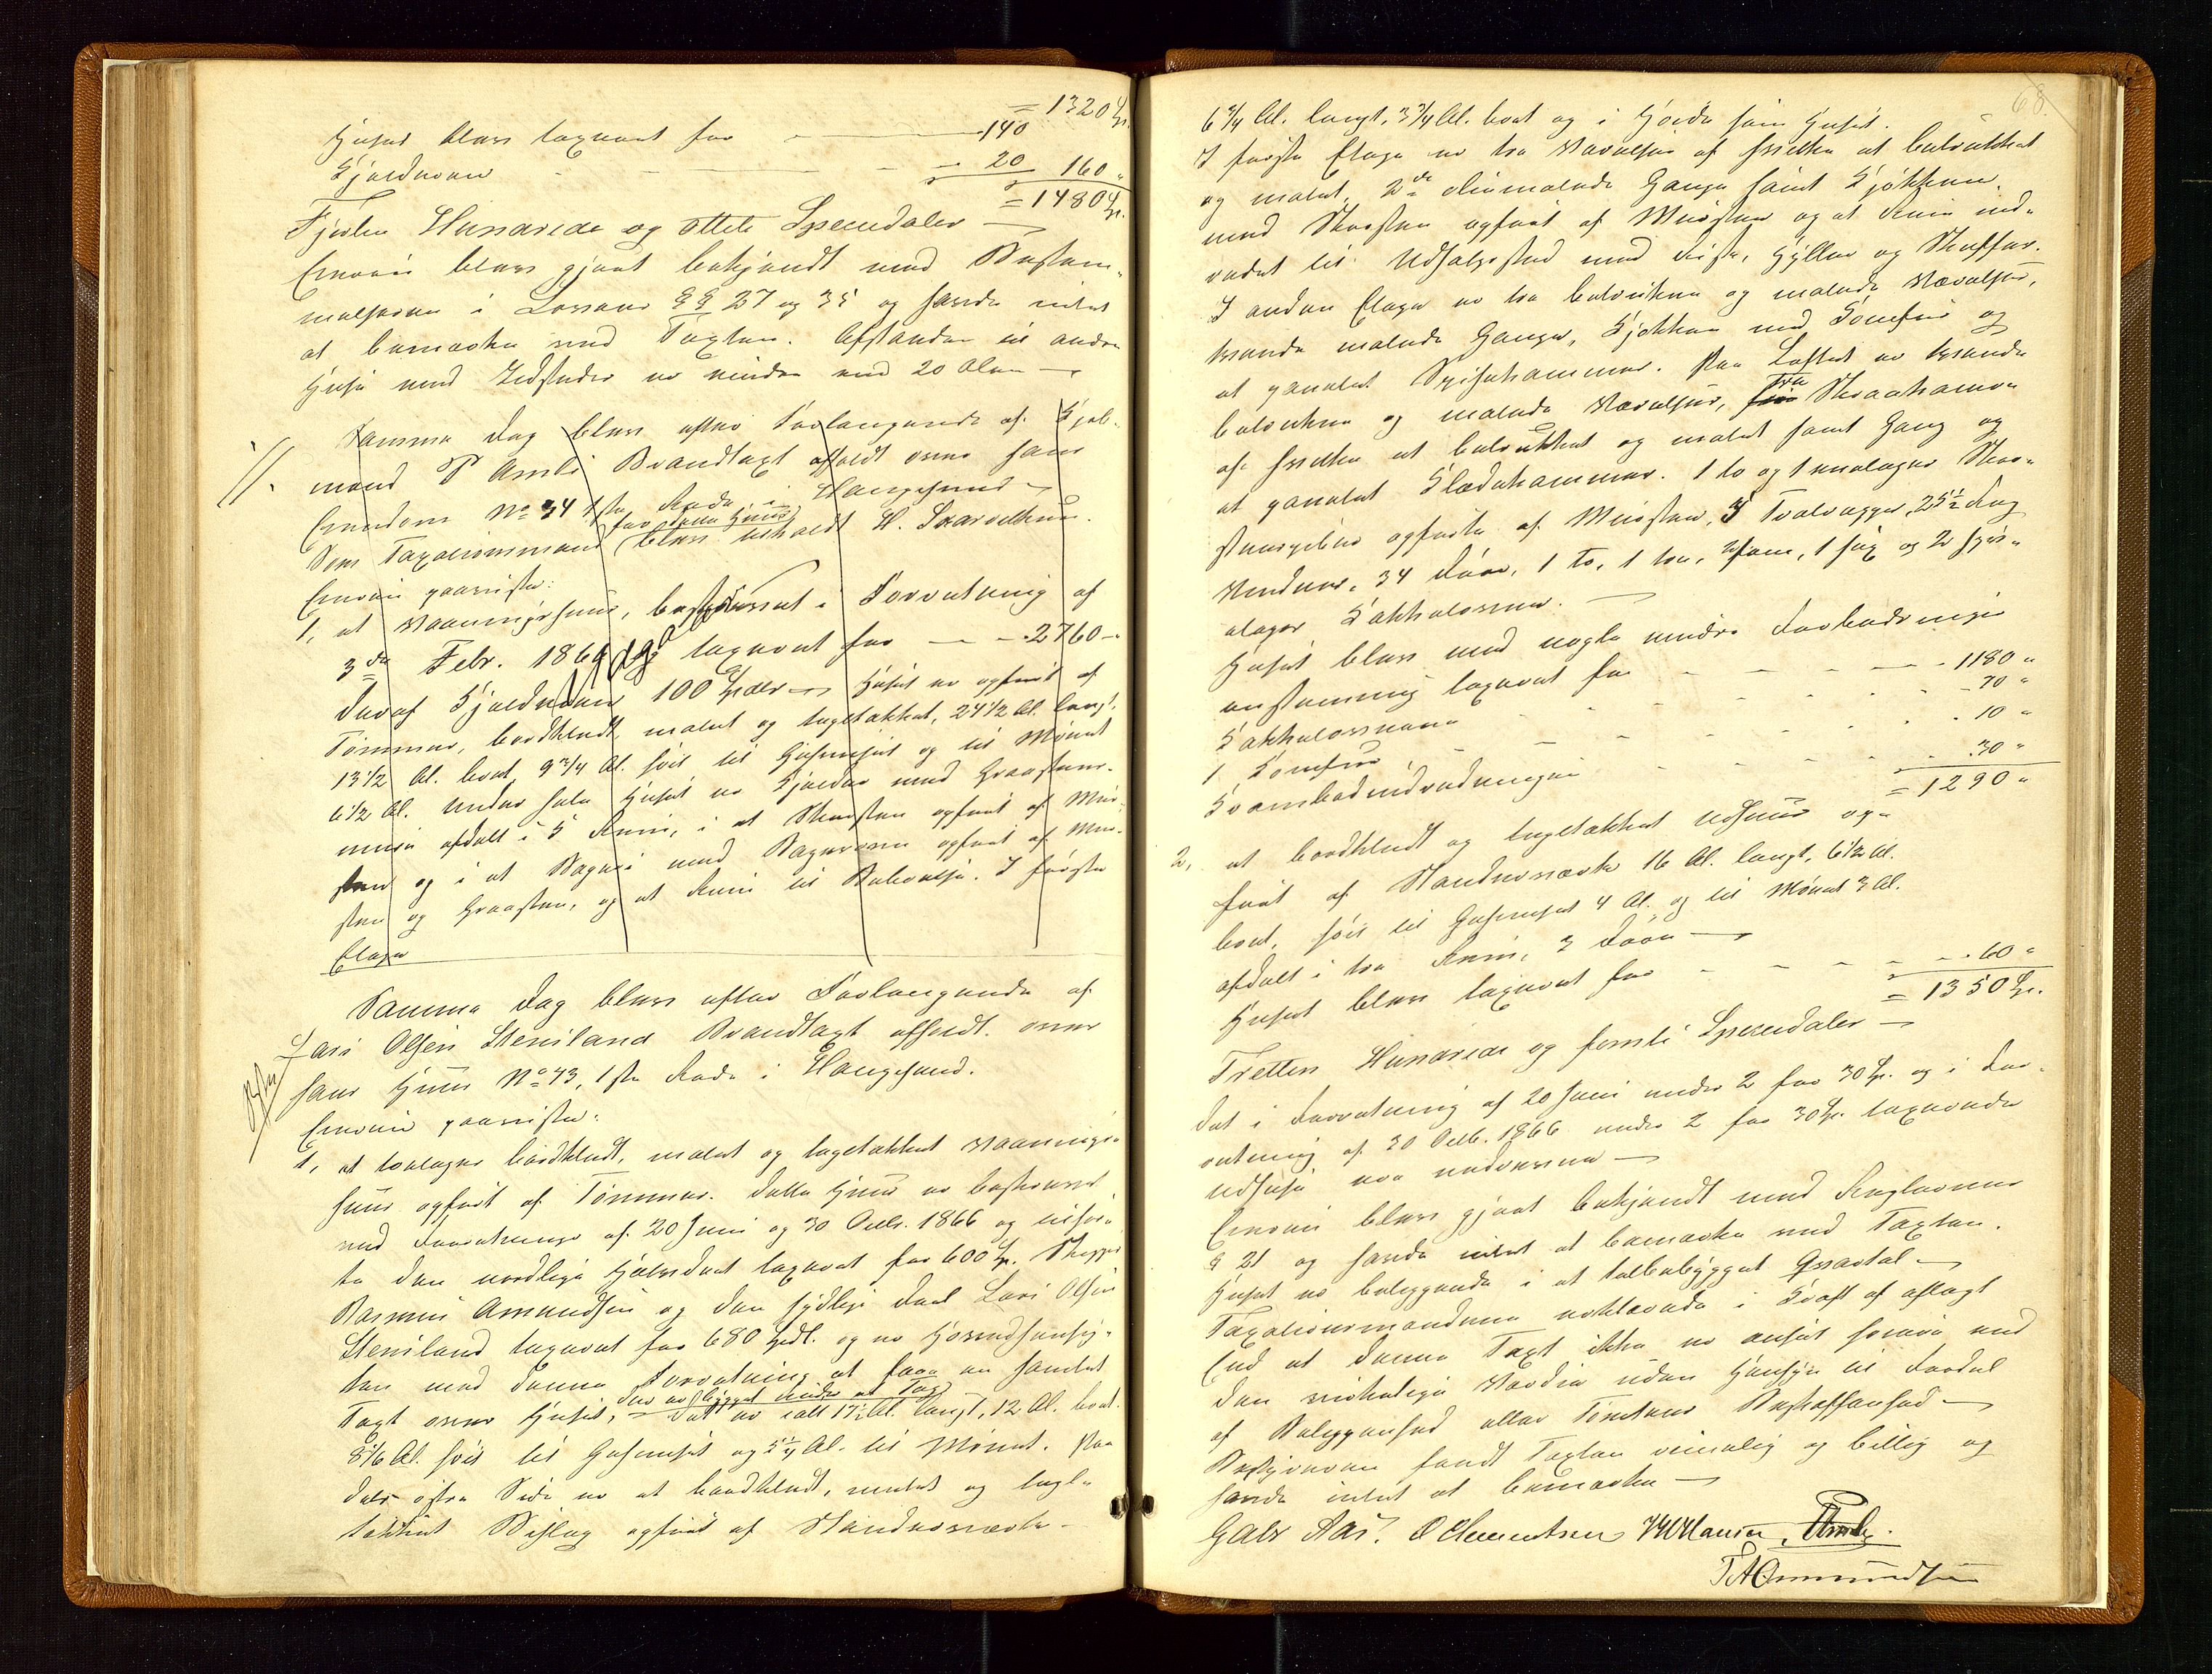 = 1320 Sp.
Huset blev taxeret for — 140
Kjelderen — 20 160 "
= 1480 Sp.
Fjorten Hundrede og otteti Speciedaler —
Eieren blev gjort bekjendt med Bestem-
melserne i Lovens §§ 27 og 35 og havde intet
at bemærke ved Taxten. Afstanden til andre
Huse med Ildsteder er mindre end 20 Alen —
Samme Dag blev efter Forlangende af Kjøb-
mand P Amli Brandtaxt afholdt over hans
Eiendom No 34 1ste Rode i Haugesund —
Som Taxationsmand (for dette Huus) blev tilkaldt H.
Eieren paaviste:
1, et Vaaningshuus, beskrevet i Forretning af
3die Febr. 186 taxeret for — — 2760 —
deraf Kjelderen 100 Spdlr — Huset er opført af
Tømmer, bordklædt, malet og tagtækket, 24 1/2 Al. langt,
13 1/2 Al. bredt, 9 3/4 Al. høit til Gesimset og til Mønet
6 1/2 Al. Under hele Huset er Kjelder med Graastens-
mure afdelt i 5 Rum, i et Skorsten opført af Muur-
sten og i et Bageri med Bagerovn opført af Muur-
sten og Graasten, og et Rum til . I første
Etage
Samme Dag blev efter Forlangende af
Lars Olsen Stensland Brandtaxt afholdt over
hans Huus No 43, 1ste Rode i Haugesund.
Eieren paaviste:
1, et toetages bordklædt, malet og tagtækket Vaanings-
huus opført af Tømmer. Dette Huus er beskrevet
ved Forretninger af 20 Juni og 30 Octb. 1866 og tilhør-
te den nordlige Halvdeel taxeret for 600 Sp. Skipper
Rasmus Amundsen og den sydlige Deel Lars Olsen
Stensland taxeret for 680 Spdl. og er Hovedhensig-
ten med denne Forretning at faae en samlet
Taxt over Huset, der er bygget under et Tag — Det er i alt 17 1/2 Al. langt, 12 Al. bredt
8 1/6 Al. høit til Gesimset og 5 1/4 Al. til Mønet. Paa
dets østre Side er et bordklædt, malet og tagt-
tækket Bislag opført af Standerværk —
68.
6 3/4 Al. langt, 3 3/4 Al. bredt og i Høide som Huset.
I første Etage er tre Værelser af hvilke et betrækket
og malet, 2de oliemalede Gange samt Kjøkken
med Skorsten opført af Muursten og et Rum ind-
redet til Udsalgssted med Disk, Hylder og Skuffer.
I anden Etage er tre betrukne og malede Værelser,
tvende malede Gange, Kjøkken med Komfur og
et panelet Spisekammer. Paa Loftet er tvende
betrukne og malede Værelser, tre Skraakamre
af hvilke et betrukket og malet samt Gang og
et panelet Klædekammer. 1 to og 1 enetages Skor-
steenspiber opførte af Muursten, 3 Tvalvægge, 25 1/2 Fag
Vinduer, 34 Døre, 1 to, 1 tre, 2 fem, 1 sex og 2 fiir-
etages Kakkelovne. —
Huset blev med nogle mindre Forbedringer
overstemmig taxeret for — — — 1180 "
Kakkelovnene — — — 70 "
1 Komfur — — — 10 "
Krambodindredningen — — — 30 "
= 1290 "
2, et bordklædt og tagtækket Udhuus op-
ført af Standerværk 16 Al. langt, 6 1/2 Al.
bredt, høit til Gesimset 4 Al. og til Mønet 3 Al.
afdelt i tre Rum, 3 Døre —
Huset blev taxeret for — — — 60 "
= 1350 Sp.
Tretten Hundrede og femti Speciedaler —
Det i Forretning af 20 Juni under 2 for 30 Sp. og i For-
retning af 30 Octb. 1866 under 2 for 30 Sp. taxerede
Udhuse ere nedrevne —
Eieren blev gjort bekjendt med Reglernes
§ 21 og havde intet at bemærke ved Taxten.
Huset er beliggende i et tætbebygget Qvartal —
Taxationsmændene erklærede i Kraft af aflagt
Eed at denne Taxt ikke er ansat høiere end
den virkelige Værdie uden Hensyn til Fordel
af Beliggenhed eller Tomtens Beskaffenhed —
Bestyreren fandt Taxten rimelig og billig og
havde intet at bemærke —
Gabr Aas. O Clementsen P Amli.
T A Ommundsen